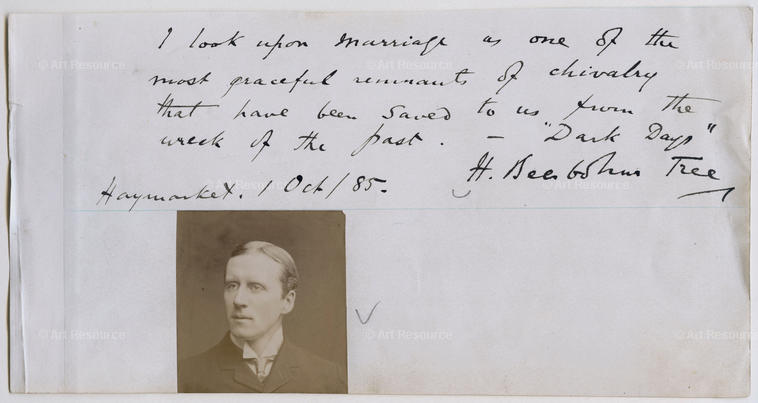 I look upon marriage as one of the
most graceful remnants of chivalry
that have been saved to us from the
wreck of the past. — "Dark Days"
H. Beerbohm Tree
Haymarket. 1 Oct/85.
© Art Resource © Art Resource © Art Resource
© Art Resource © Art Resource © Art Resource
© Art Resource © Art Resource © Art Resource